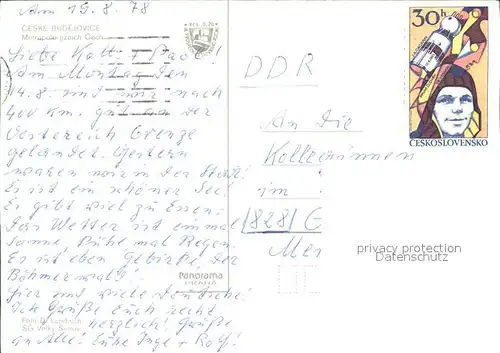 Am 19.8.78
ČESKÉ BUDĚJOVICE
Metropole jižních Čech
Liebe
Am Montag den
14.8. sind wir nach
400 km. gut an der
Oesterreich Grenze
gelandet. Gestern
waren wir in der Stadt.
Es ist ein schöner See!
Es gibt viel zu Essen.
Das Wetter ist einmal
Sonne, Kühe mal Regen.
Es ist eben Gebirge der
Böhmerwald!
Hier sind viele Deutsche!
Ich Grüße Euch recht
herzlich! Grüße
an Alle! Eure Inge + Rolf!
Panorama
PRAHA
DDR
An Die
Kolleginnen
im
(828) G
30h
ČESKOSLOVENSKO
privacy protection
Datenschutz